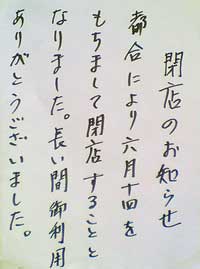 閉店のお知らせ
都合により六月十四を
もちまして閉店することと
なりました。長い間御利用
ありがとうございました。